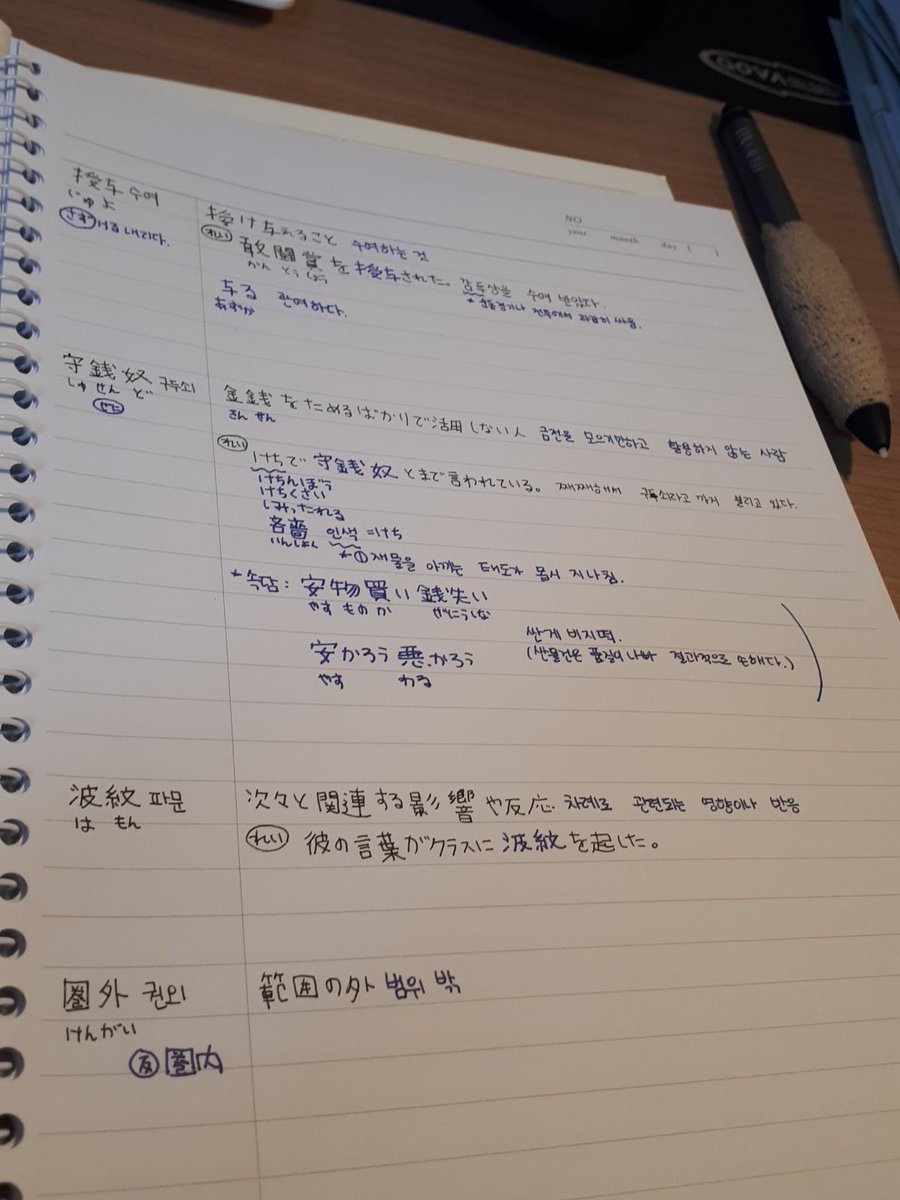 NO
year month day ( )
授与 수여
じゅよ
さずける 내리다.
授け与えること 수여하는 것
れい 敢闘賞を授与された。 감투상을 수여 받았다.
かん とう しょう
* 운동경기나 전투에서 과감히 싸움.
与る 관여하다.
あずか
守銭奴 구두쇠
しゅ せん ど
金銭をためるばかりで活用しない人 금전을 모으기만하고 활용하지 않는 사람
きん せん
れい けちで守銭奴とまで言われている。 째째해서 구두쇠라고 까지 불리고 있다.
けちんぼう
けちくさい
しみったれる
吝嗇 인색 =けち
りんしょく
*① 재물을 아끼는 태도가 몹시 지나침.
* 속담: 安物買い銭失い
やす もの か ぜにうしな
싼게 비지떡.
安かろう悪かろう (싼물건은 품질이 나빠 결과적으로 손해다.)
やす わる
波紋 파문
は もん
次々と関連する影響や反応. 차례로 관련되는 영향이나 반응
れい 彼の言葉がクラスに波紋を起した。
圏外 권외
けんがい
反 圏内
範囲の外 범위 밖